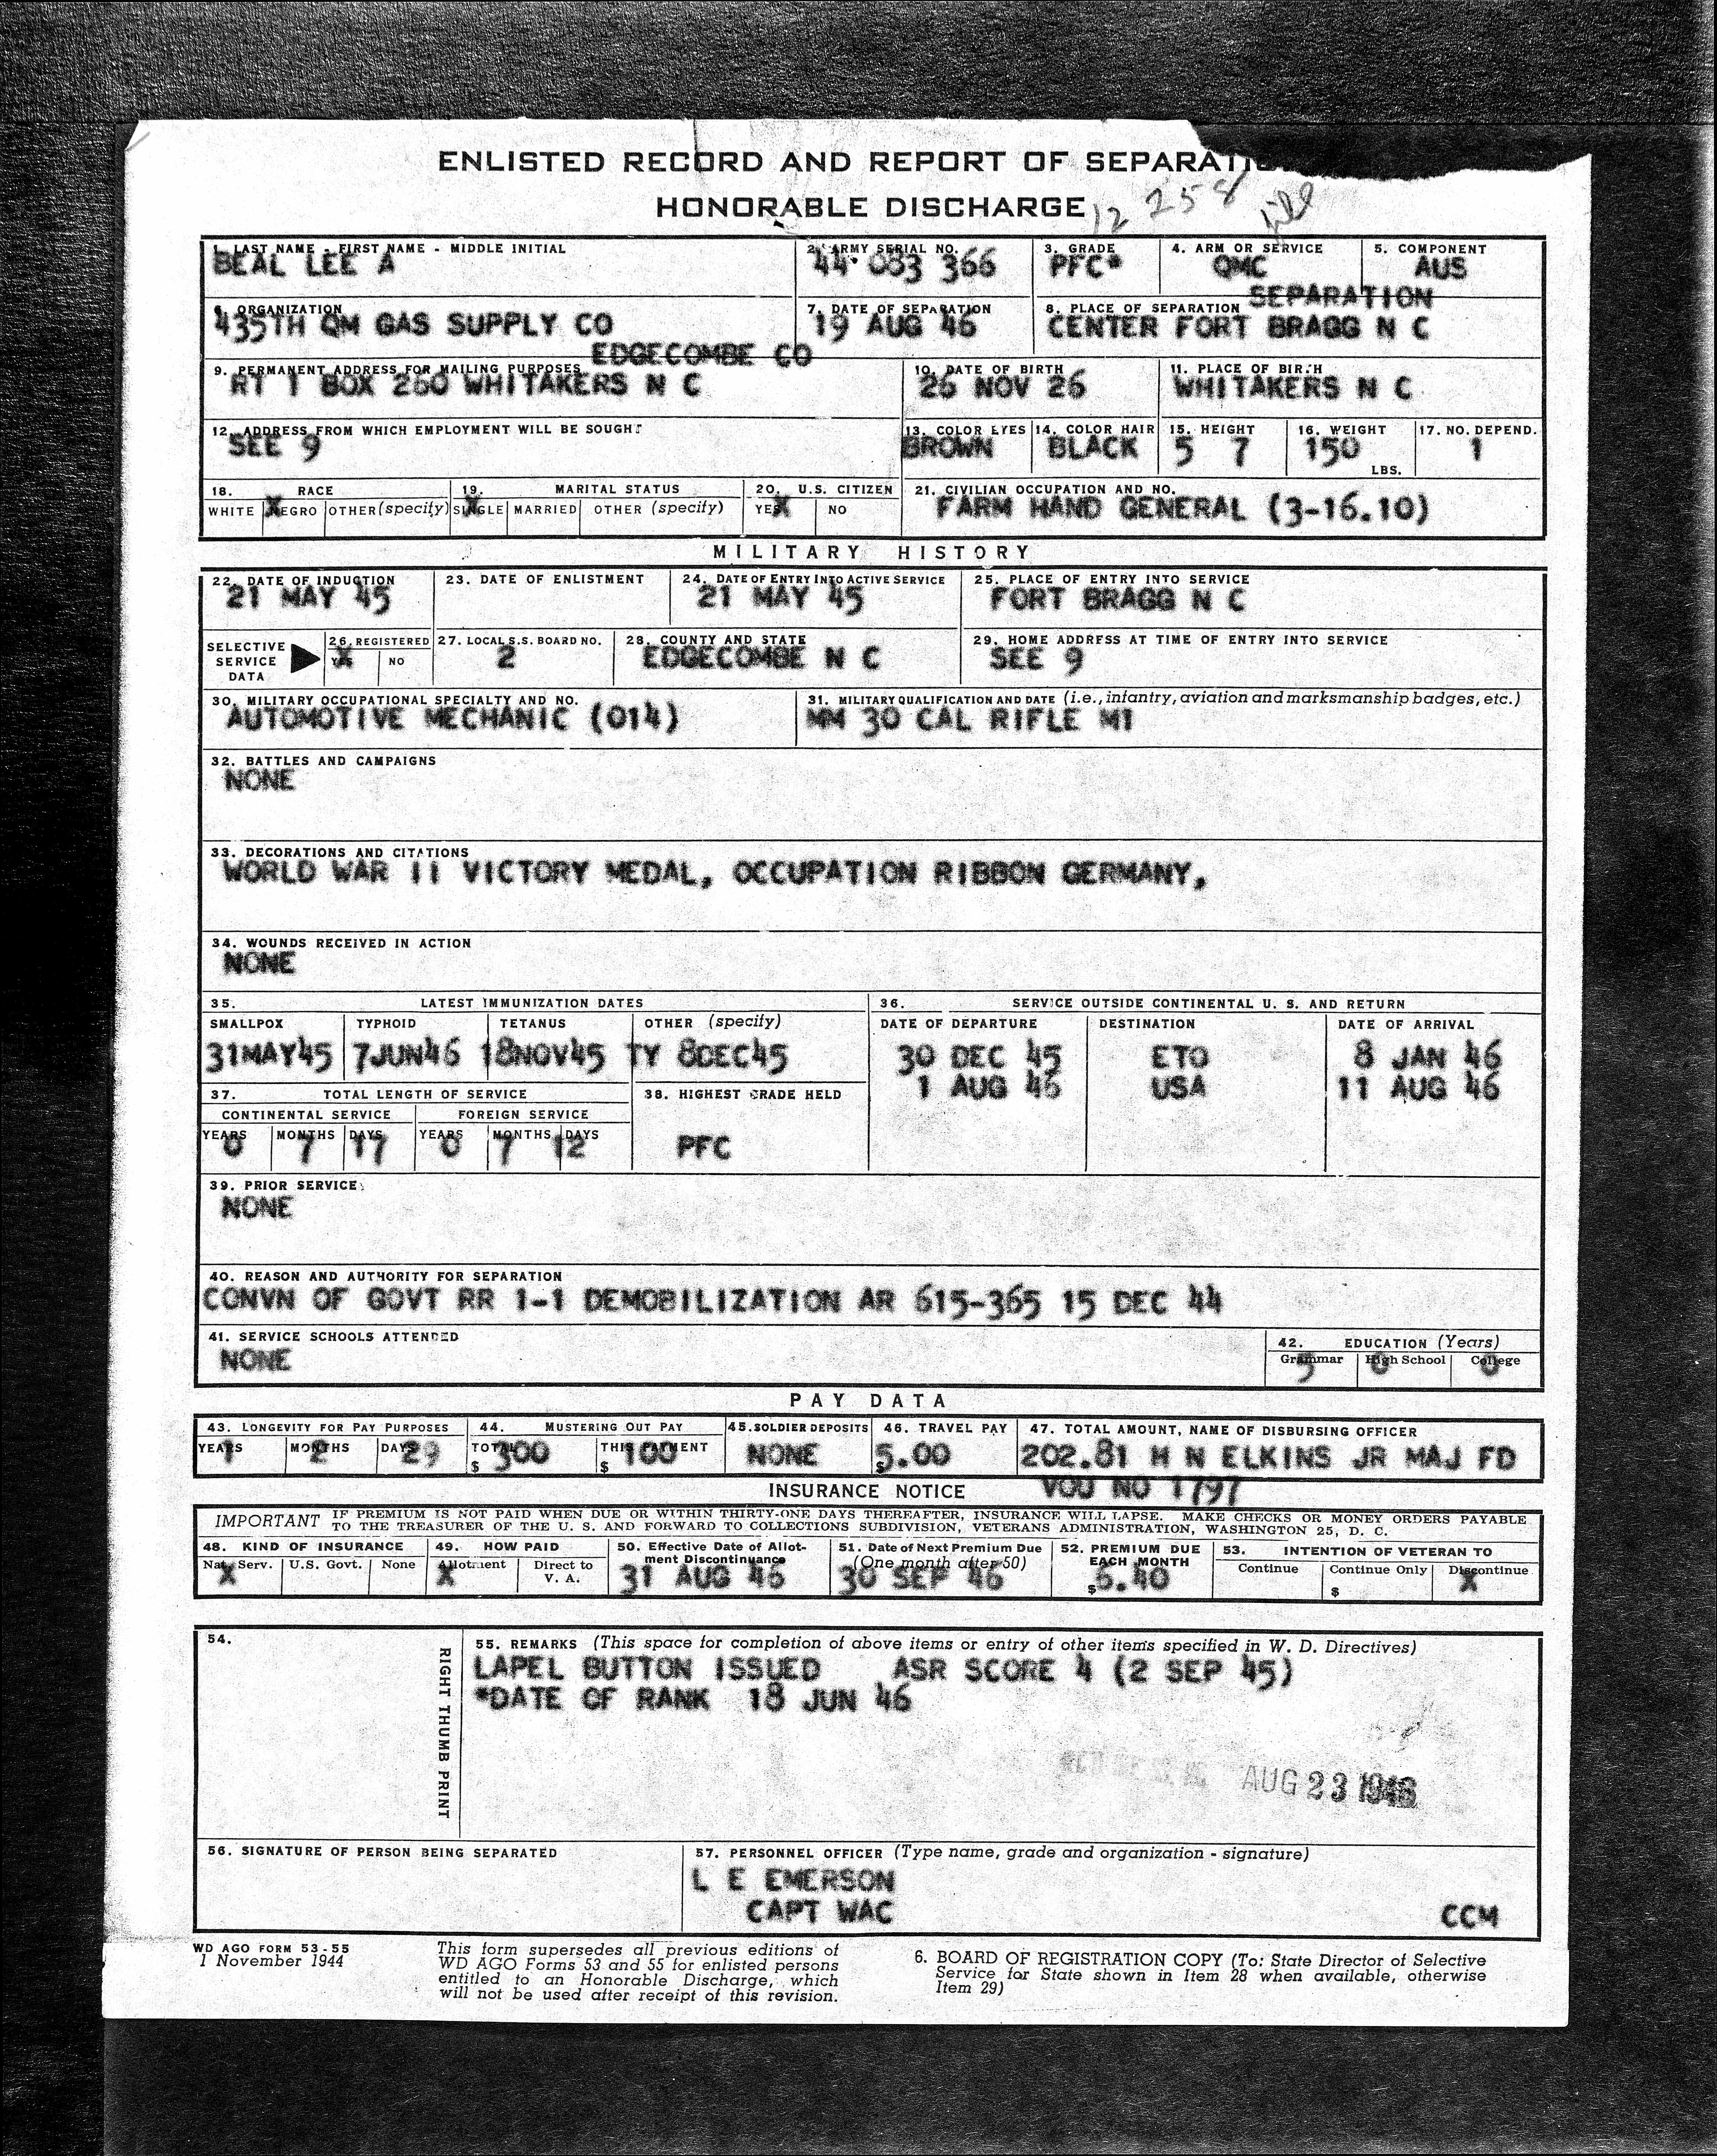 ENLISTED RECORD AND REPORT OF SEPARATIO
HONORABLE DISCHARGE
12 258
1. LAST NAME - FIRST NAME - MIDDLE INITIAL 2. ARMY SERIAL NO. 3. GRADE 4. ARM OR SERVICE 5. COMPONENT
BEAL LEE A 44 083 366 PFC* QMC AUS
6. ORGANIZATION 7. DATE OF SEPARATION 8. PLACE OF SEPARATION SEPARATION
435TH QM GAS SUPPLY CO 19 AUG 46 CENTER FORT BRAGG N C
EDGECOMBE CO
9. PERMANENT ADDRESS FOR MAILING PURPOSES 10. DATE OF BIRTH 11. PLACE OF BIRTH
RT 1 BOX 260 WHITAKERS N C 26 NOV 26 WHITAKERS N C
12. ADDRESS FROM WHICH EMPLOYMENT WILL BE SOUGHT 13. COLOR EYES 14. COLOR HAIR 15. HEIGHT 16. WEIGHT 17. NO. DEPEND.
SEE 9 BROWN BLACK 5 7 150 LBS. 1
18. RACE 19. MARITAL STATUS 20. U.S. CITIZEN 21. CIVILIAN OCCUPATION AND NO.
WHITE X NEGRO OTHER (specify) X SINGLE MARRIED OTHER (specify) YES X NO FARM HAND GENERAL (3-16.10)
MILITARY HISTORY
22. DATE OF INDUCTION 23. DATE OF ENLISTMENT 24. DATE OF ENTRY INTO ACTIVE SERVICE 25. PLACE OF ENTRY INTO SERVICE
21 MAY 45 21 MAY 45 FORT BRAGG N C
SELECTIVE SERVICE DATA 26. REGISTERED 27. LOCAL S.S. BOARD NO. 28. COUNTY AND STATE 29. HOME ADDRESS AT TIME OF ENTRY INTO SERVICE
YES X NO 2 EDGECOMBE N C SEE 9
30. MILITARY OCCUPATIONAL SPECIALTY AND NO. 31. MILITARY QUALIFICATION AND DATE (i.e., infantry, aviation and marksmanship badges, etc.)
AUTOMOTIVE MECHANIC (014) MM 30 CAL RIFLE M1
32. BATTLES AND CAMPAIGNS
NONE
33. DECORATIONS AND CITATIONS
WORLD WAR II VICTORY MEDAL, OCCUPATION RIBBON GERMANY,
34. WOUNDS RECEIVED IN ACTION
NONE
35. LATEST IMMUNIZATION DATES 36. SERVICE OUTSIDE CONTINENTAL U. S. AND RETURN
SMALLPOX TYPHOID TETANUS OTHER (specify) DATE OF DEPARTURE DESTINATION DATE OF ARRIVAL
31MAY45 7JUN46 18NOV45 TY 8DEC45 30 DEC 45 ETO 8 JAN 46
1 AUG 46 USA 11 AUG 46
37. TOTAL LENGTH OF SERVICE 38. HIGHEST GRADE HELD
CONTINENTAL SERVICE FOREIGN SERVICE
YEARS MONTHS DAYS YEARS MONTHS DAYS
0 7 17 0 7 12 PFC
39. PRIOR SERVICE
NONE
40. REASON AND AUTHORITY FOR SEPARATION
CONVN OF GOVT RR 1-1 DEMOBILIZATION AR 615-365 15 DEC 44
41. SERVICE SCHOOLS ATTENDED 42. EDUCATION (Years)
NONE Grammar High School College
5 0 0
PAY DATA
43. LONGEVITY FOR PAY PURPOSES 44. MUSTERING OUT PAY 45. SOLDIER DEPOSITS 46. TRAVEL PAY 47. TOTAL AMOUNT, NAME OF DISBURSING OFFICER
YEARS MONTHS DAYS TOTAL THIS PAYMENT
1 2 29 $ 300 $ 100 NONE $5.00 202.81 H N ELKINS JR MAJ FD
INSURANCE NOTICE VOU NO 1797
IMPORTANT IF PREMIUM IS NOT PAID WHEN DUE OR WITHIN THIRTY-ONE DAYS THEREAFTER, INSURANCE WILL LAPSE. MAKE CHECKS OR MONEY ORDERS PAYABLE
TO THE TREASURER OF THE U. S. AND FORWARD TO COLLECTIONS SUBDIVISION, VETERANS ADMINISTRATION, WASHINGTON 25, D. C.
48. KIND OF INSURANCE 49. HOW PAID 50. Effective Date of Allotment Discontinuance 51. Date of Next Premium Due (One month after 50) 52. PREMIUM DUE EACH MONTH 53. INTENTION OF VETERAN TO
Nat. Serv. U.S. Govt. None Allotment Direct to V. A. Continue Continue Only Discontinue
X X 31 AUG 46 30 SEP 46 $6.40 $ X
54. RIGHT THUMB PRINT
55. REMARKS (This space for completion of above items or entry of other items specified in W. D. Directives)
LAPEL BUTTON ISSUED ASR SCORE 4 (2 SEP 45)
*DATE OF RANK 18 JUN 46
AUG 23 1946
56. SIGNATURE OF PERSON BEING SEPARATED 57. PERSONNEL OFFICER (Type name, grade and organization - signature)
L E EMERSON
CAPT WAC CCM
WD AGO FORM 53-55
1 November 1944
This form supersedes all previous editions of
WD AGO Forms 53 and 55 for enlisted persons
entitled to an Honorable Discharge, which
will not be used after receipt of this revision.
6. BOARD OF REGISTRATION COPY (To: State Director of Selective
Service for State shown in Item 28 when available, otherwise
Item 29)